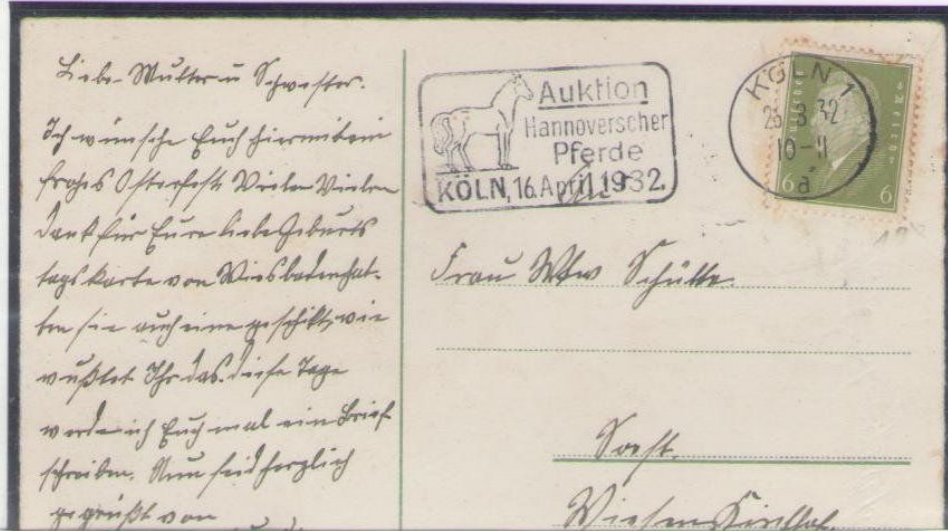 Liebe Mutter u Schwester.
Ich wünsche Euch hiermit ein
frohes Osterfest. Vielen Vielen
Dank für Eure liebe Geburts
tags Karte von Wiesbaden hat-
ten sie auch eine geschikt, wie
wußtet Ihr das. diese Tage
werde ich Euch mal ein Brief
schreiben. Nun seid herzlich
gegrüßt von
Auktion
Hannoverscher
Pferde
KÖLN, 16. April 1932.
KÖLN 1
26.3.32
10-11
a
Deutsches Reich
6 6
Frau Wtw Schütte.
Soest.
Wiesen Kirchhof.